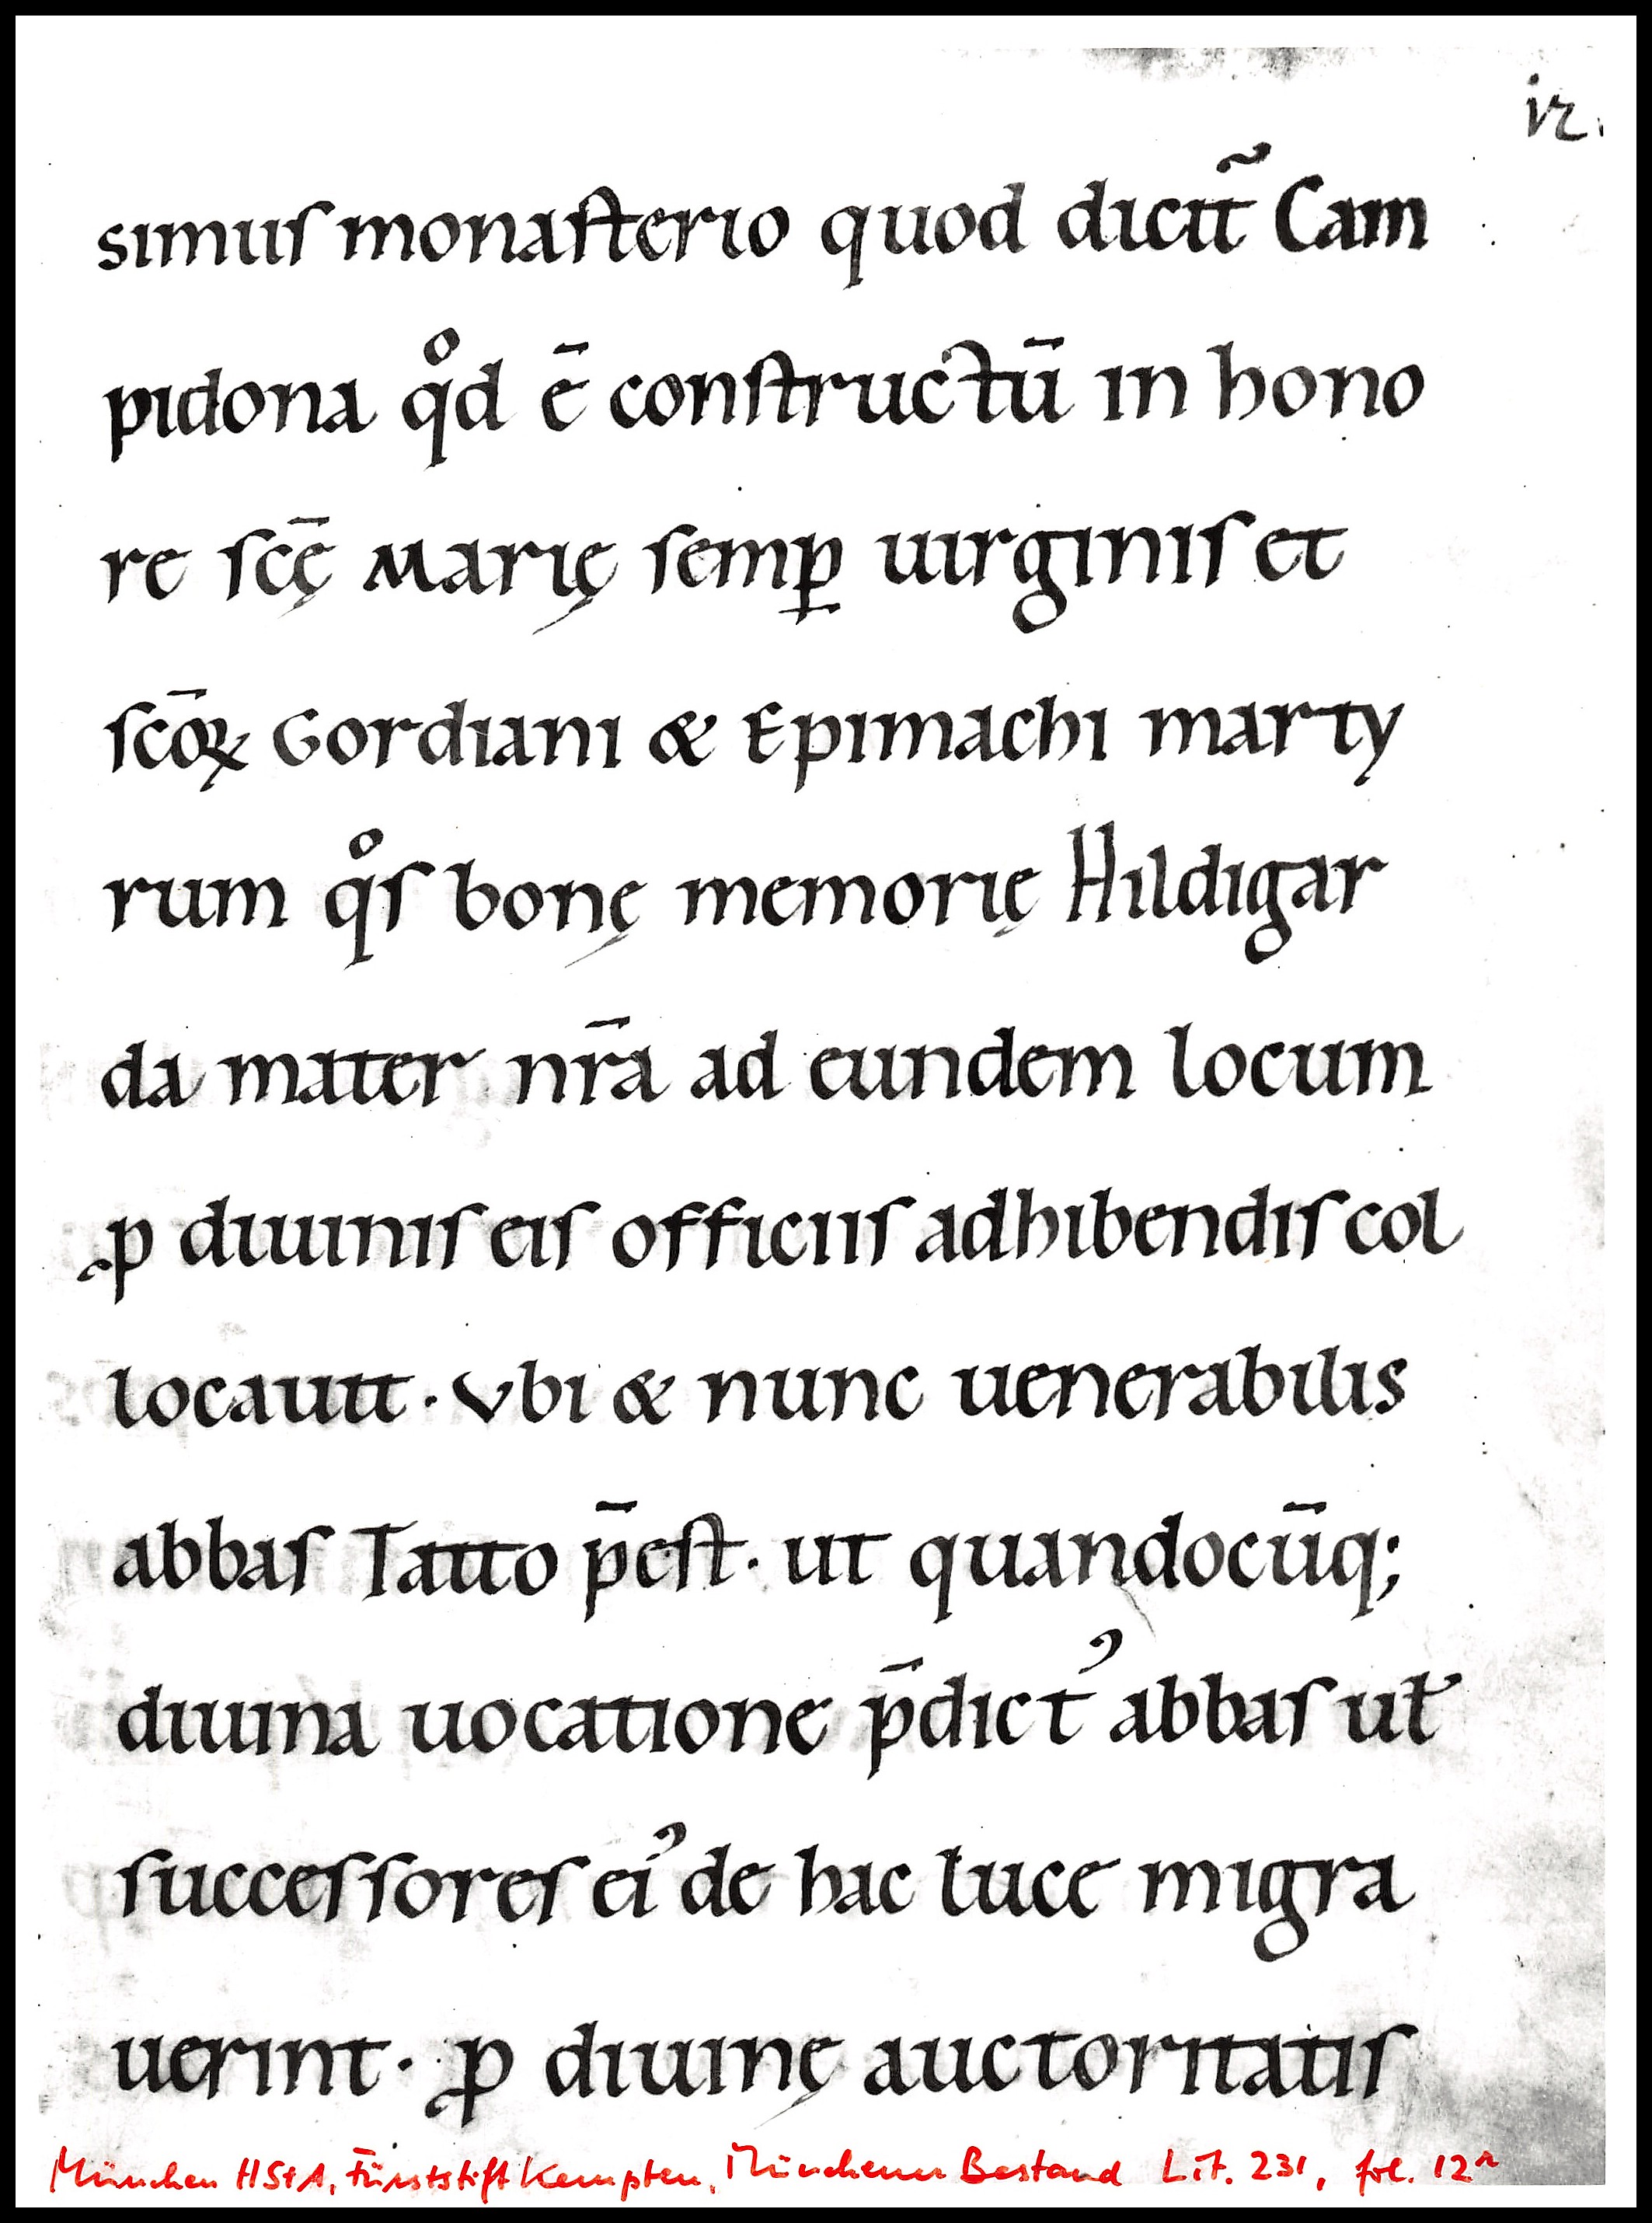 12.
simus monasterio quod dicit᷒ Cam
pidona qͦd ē constructū in hono
re scę̄ Marię semꝑ uirginis et
scōꝝ Gordiani & Epimachi marty
rum qͦs bonę memorię Hildigar
da mater nr̄a ad eundem locum
ꝓ diuinis eis officiis adhibendis col
locauit · Vbi & nunc uenerabilis
abbas Tatto p̄est · ut quandocūq;
diuina uocatione p̄dictꝰ abbas uł
successores eiꝰ de hac luce migra
uerint · ꝓ diuinę auctoritatis
München HStA, Fürststift Kempten, Münchener Bestand Lit. 231, fol. 12r